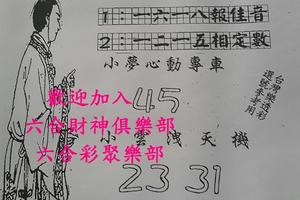 1：一六一八報佳音
2：一二一五相定數
小夢心動專車
台灣樂透彩
選號參考用
歡迎加入
45
六合財神俱樂部
小雲洩天機
六合彩聚樂部
23 31